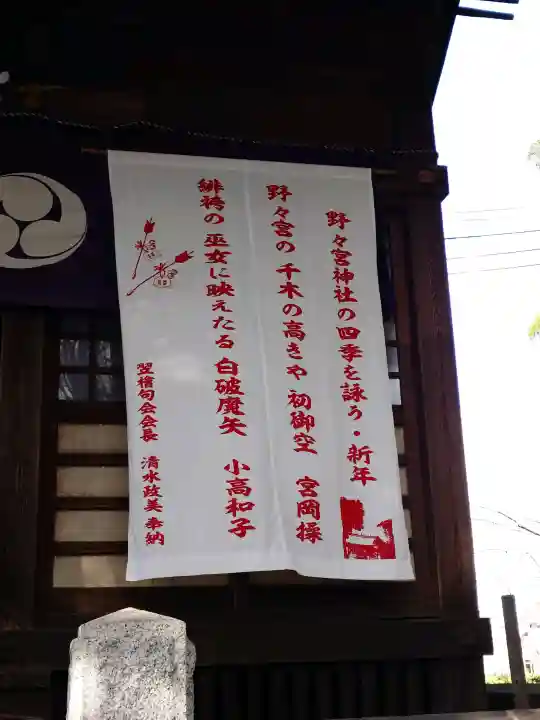 野々宮神社の四季を詠う・新年
野々宮の 千木の高きや 初御空 宮岡操
緋袴の 巫女に映えたる 白破魔矢 小高和子
翌檜句会会長 清水政美 奉納